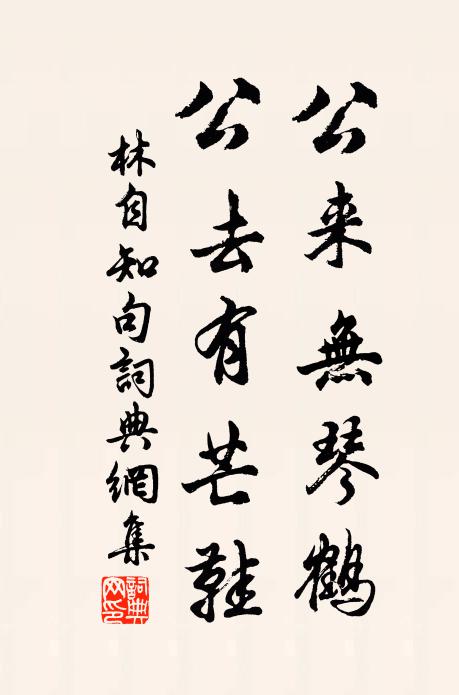 公来無琴鶴
公去有芒鞋
林自知句詞典網集
詞典網印